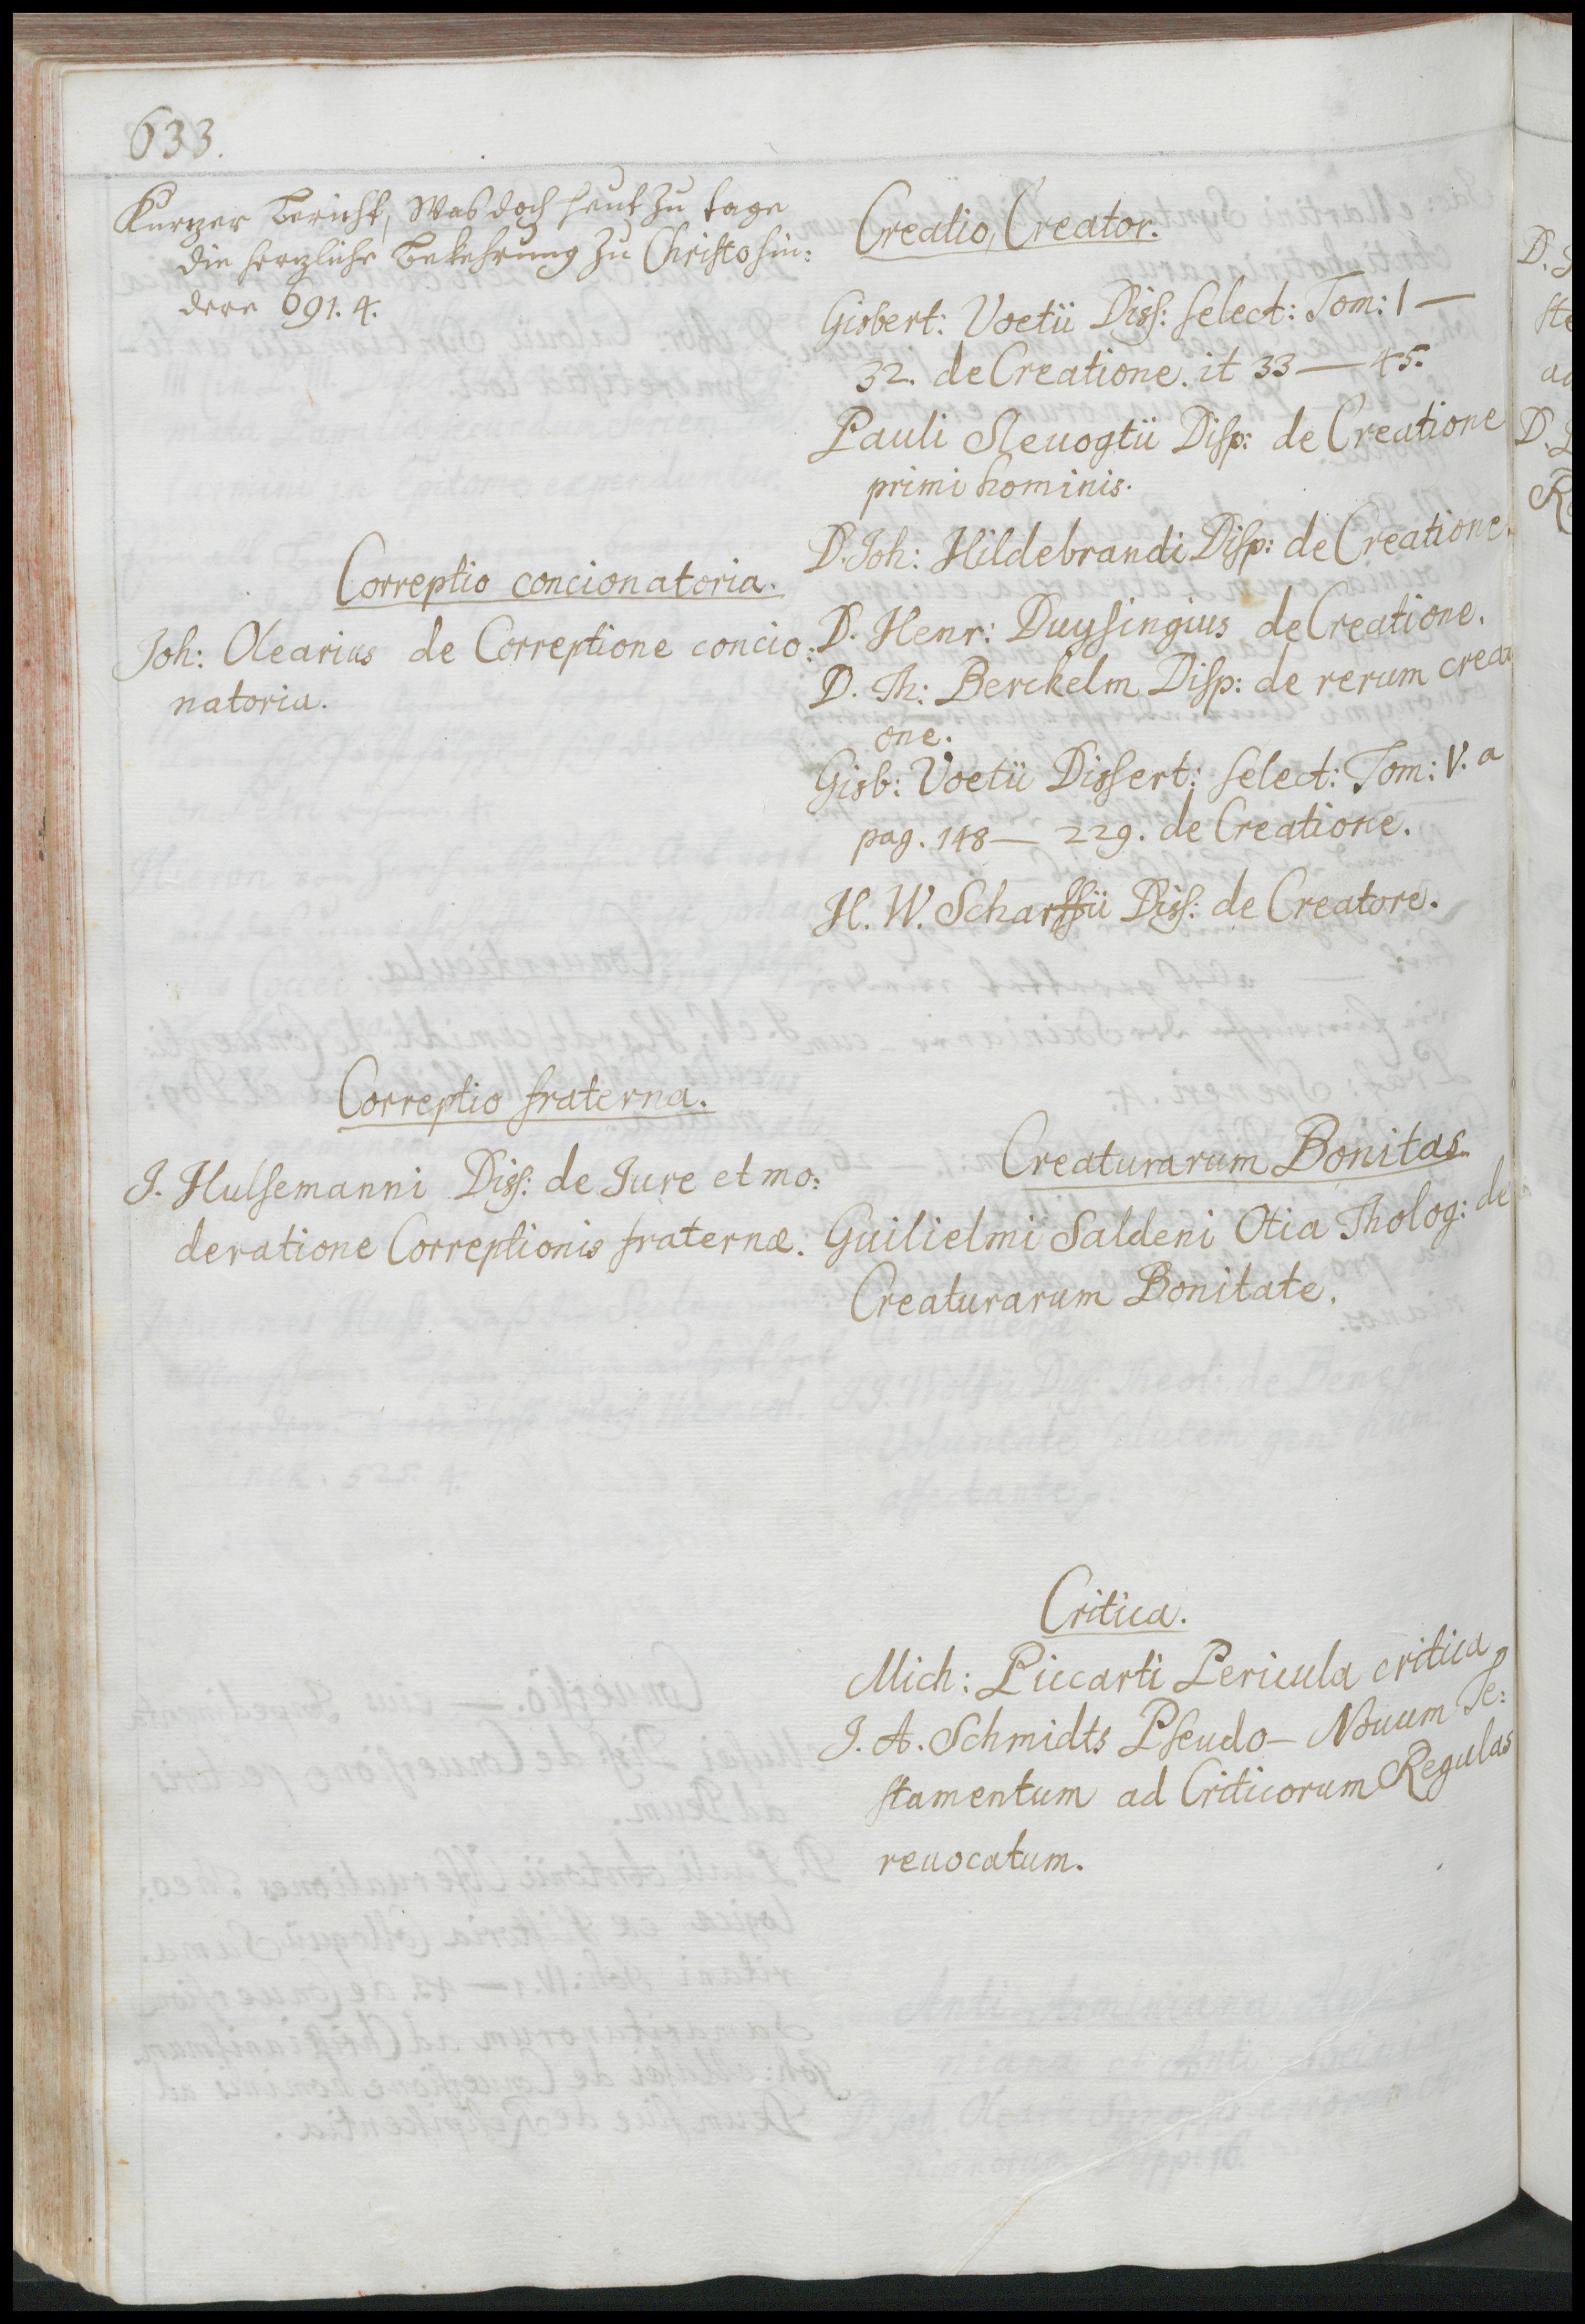 633.
Kurtzer Bericht, Was doch heut zu tage
die hertzliche Bekehrung zu Christo hin:
dere 691. 4.
Correptio concionatoria.
Joh: Olearius de Correptione concio:
natoria.
Correptio fraterna.
J. Hulsemanni Diss: de Jure et mo:
deratione Correptionis fraternæ.
Creatio, Creator.
Gisbert: Voetii Diss: select: Tom: 1 —
32. de Creatione. it 33 — 45.
Pauli Sleuogtii Disp: de Creatione
primi hominis.
D. Joh: Hildebrandi Disp: de Creatione.
D. Henr: Duysingius de Creatione.
D. Th: Berckelm Disp: de rerum creati
one.
Gisb: Voetii Dissert: select: Tom: V. a
pag. 148 — 229. de Creatione.
H. W. Scharffii Diss: de Creatore.
Creaturarum Bonitas.
Guilielmi Saldeni Otia Tholog: de
Creaturarum Bonitate.
Critica.
Mich: Piccarti Pericula critica
J. A. Schmidts Pseudo- Nouum Te:
stamentum ad Criticorum Regulas
reuocatum.